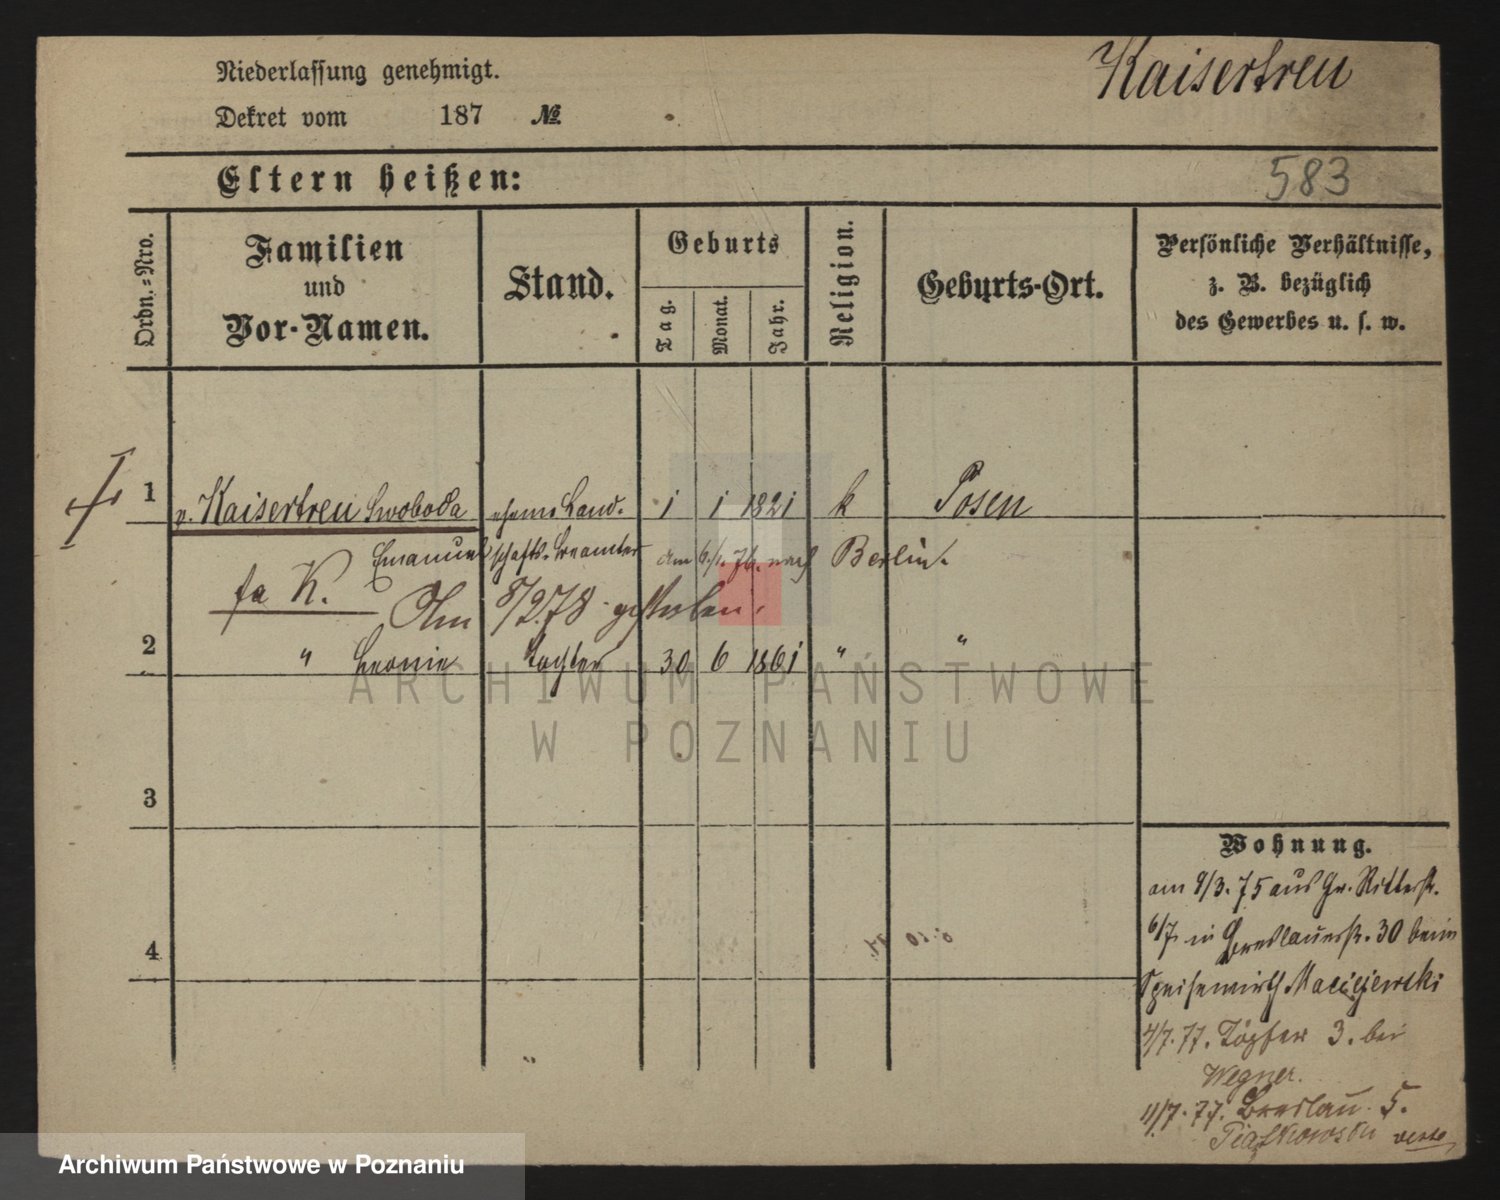 Niederlassung genehmigt.
Kaisertreu
Dekret vom 187 №
Eltern heißen:
583
Ordn.-Nro.
Familien
und
Vor-Namen.
Stand.
Geburts
Tag.
Monat.
Jahr.
Religion.
Geburts-Ort.
Persönliche Verhältnisse,
z. B. bezüglich
des Gewerbes u. s. w.
1 v. Kaisertreu Swoboda ehem. Land- 1 1 1821 k Posen
Emanuel schafts-Beamter am 6/1. 76. nach Berlin.
fa K. Am 8/2 78 gestorben.
2 " Leonie Tochter 30 6 1861 " "
ARCHIWUM PAŃSTWOWE
W POZNANIU
3
4
Wohnung.
am 9/3. 75 aus Gr. Ritterstr.
6/7 in Breslauerstr. 30 beim
Speisewirth Maciejewski
4/7. 77. Töpfer 3. bei
Wegner.
11/7. 77. Breslau. 5.
Piątkowski
Archiwum Państwowe w Poznaniu